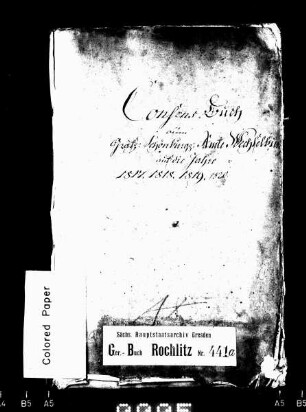 Consens Buch
zum
Gräfl. Schönburg. Amte Wechselburg
auf die Jahre
1817. 1818. 1819. 1820.
Sächs. Hauptstaatsarchiv Dresden
Ger.- Buch Rochlitz Nr. 441a
Colored Paper
A4 B5 A5 A5 B5 A4